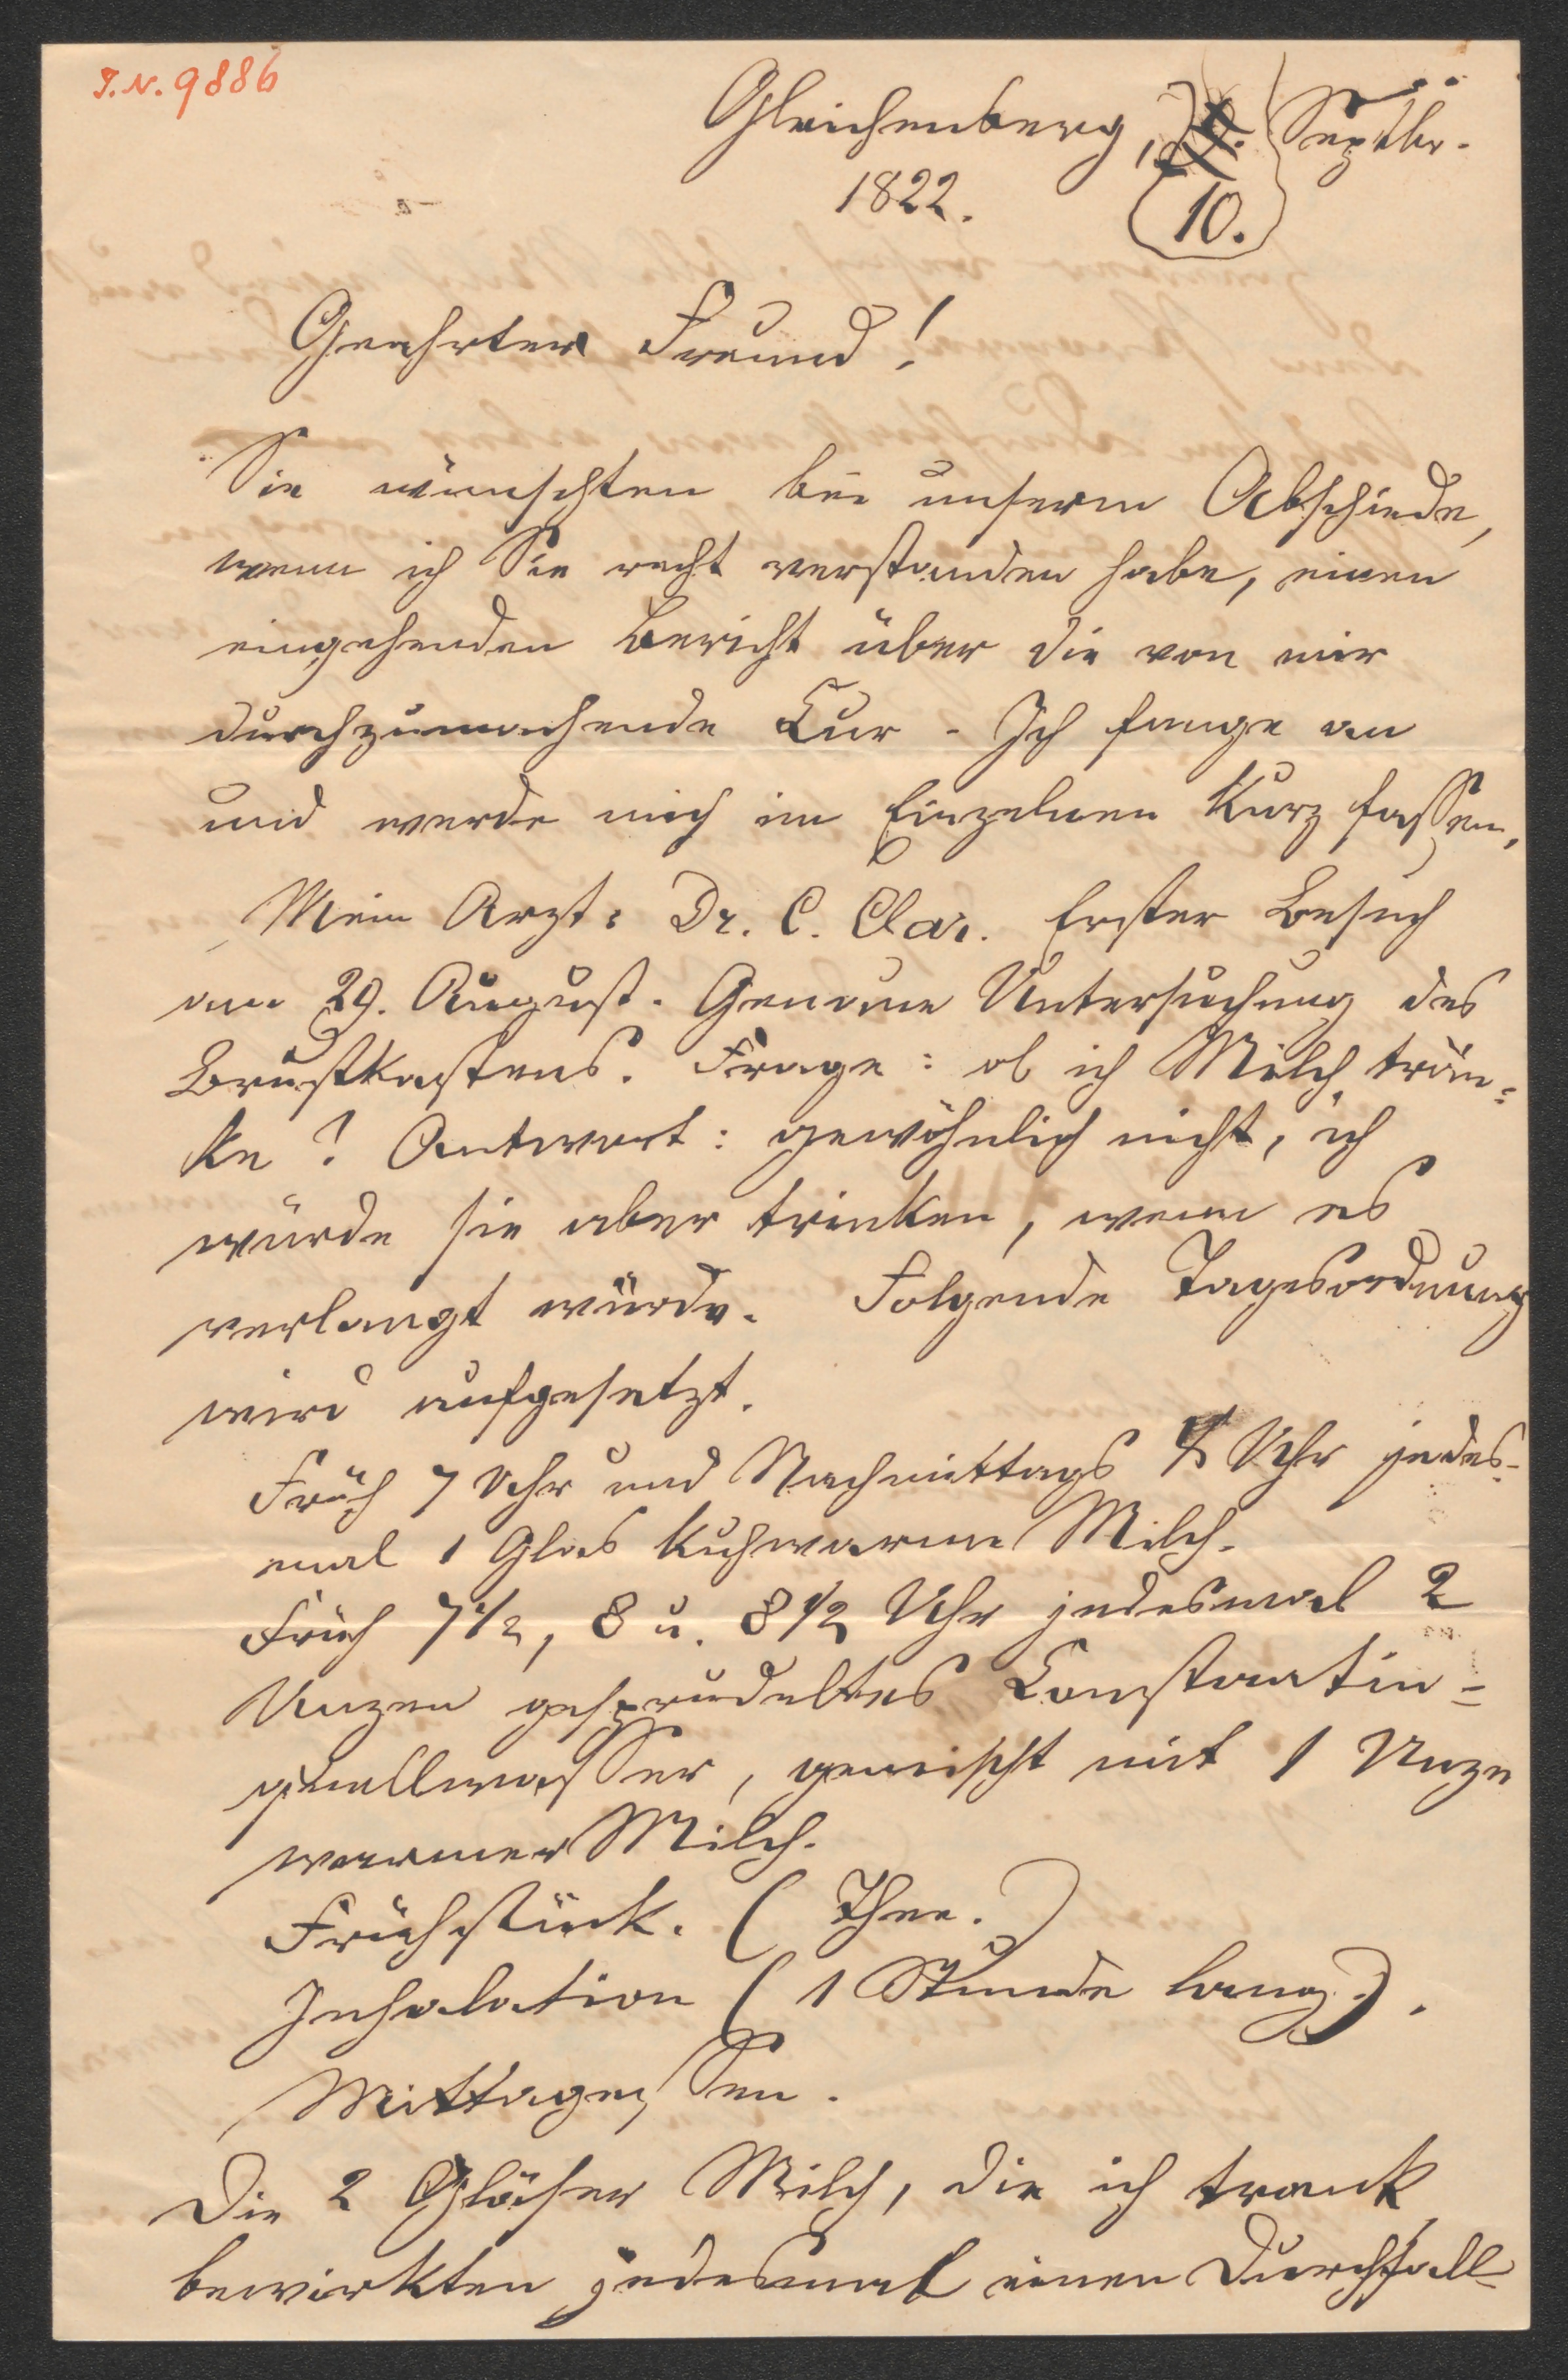 I.N. 9886
Gleichenberg, Septbr.
1822.
10.
Geehrter Freund!
Sie wünschten bei unserm Abschiede,
wenn ich Sie recht verstanden habe, einen
eingehenden Bericht über die von mir
durchzumachende Cur. Ich fange an
und werde mich im Einzelnen kurz fassen.
Mein Arzt: Dr. C. Clar. Erster Besuch
am 29. August. Genaue Untersuchung des
Brustkastens. Frage: ob ich Milch trän=
ke? Antwort: gewöhnlich nicht, ich
würde sie aber trinken, wenn es
verlangt würde. Folgende Tagesordnung
wird aufgesetzt.
Früh 7 Uhr und Nachmittags Uhr jedes-
mal 1 Glas kuhwarme Milch.
Früh 7 1/2, 8 u. 8 1/2 Uhr jedesmal 2
Unzen gesprudeltes Constantin=
quellwasser, gemischt mit 1 Unze
warmer Milch.
Frühstück. (Thee.)
Inhalation (1 Stunde lang.).
Mittagessen.
Die 2 Gläser Milch, die ich trank
bewirkten jedesmal einen Durchfall